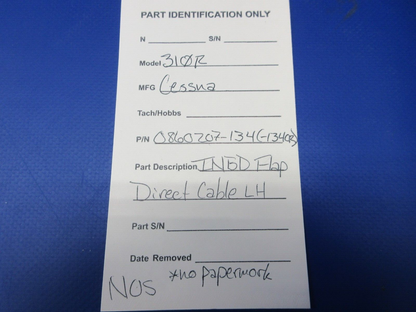 PART IDENTIFICATION ONLY
N S/N
Model 310R
MFG Cessna
Tach/Hobbs
P/N 0860207-134
Part Description INBD Flap
Direct Cable LH
Part S/N
Date Removed
*no paperwork
NOS